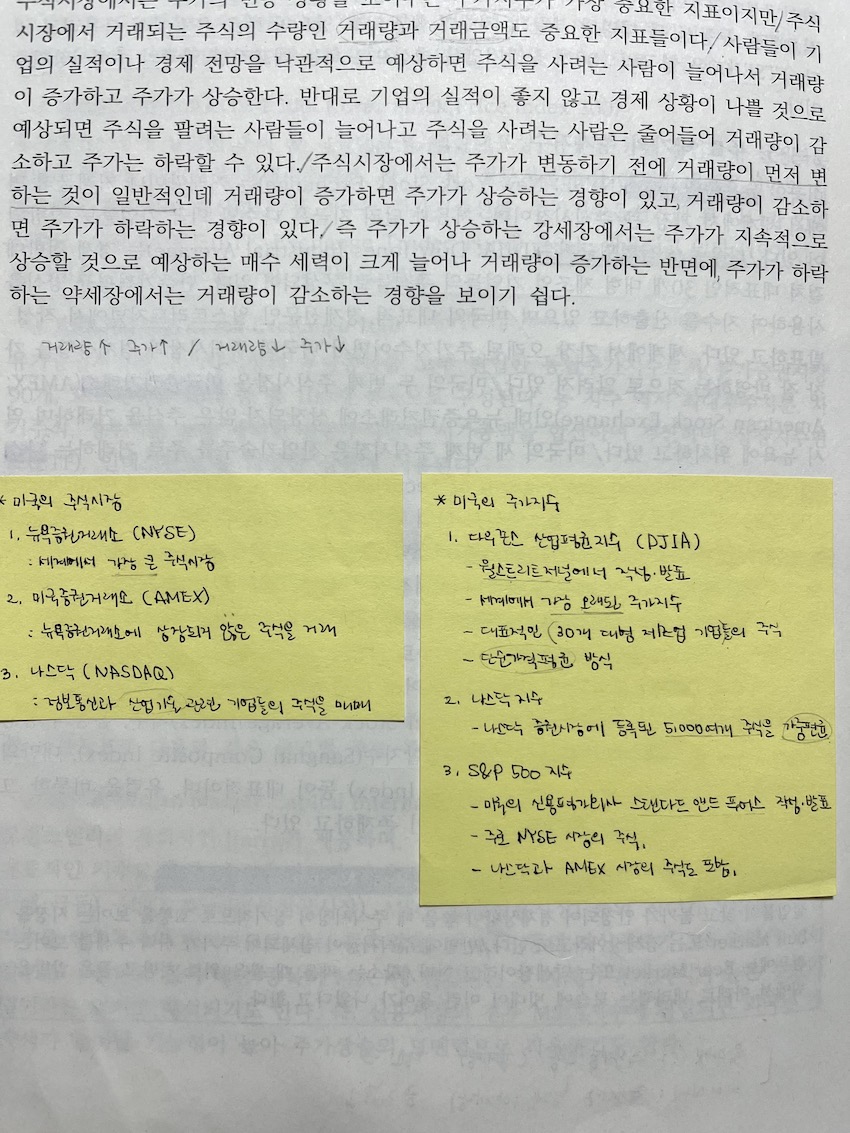 주식시장에서는 주가의 변동 상황을 보여주는 주가지수가 가장 중요한 지표이지만/주식
시장에서 거래되는 주식의 수량인 거래량과 거래금액도 중요한 지표들이다./사람들이 기
업의 실적이나 경제 전망을 낙관적으로 예상하면 주식을 사려는 사람이 늘어나서 거래량
이 증가하고 주가가 상승한다. 반대로 기업의 실적이 좋지 않고 경제 상황이 나쁠 것으로
예상되면 주식을 팔려는 사람들이 늘어나고 주식을 사려는 사람은 줄어들어 거래량이 감
소하고 주가는 하락할 수 있다./주식시장에서는 주가가 변동하기 전에 거래량이 먼저 변
하는 것이 일반적인데 거래량이 증가하면 주가가 상승하는 경향이 있고, 거래량이 감소하
면 주가가 하락하는 경향이 있다./즉 주가가 상승하는 강세장에서는 주가가 지속적으로
상승할 것으로 예상하는 매수 세력이 크게 늘어나 거래량이 증가하는 반면에, 주가가 하락
하는 약세장에서는 거래량이 감소하는 경향을 보이기 쉽다.
거래량↑ 주가↑ / 거래량↓ 주가↓
* 미국의 주식시장
1. 뉴욕증권거래소 (NYSE)
: 세계에서 가장 큰 주식시장
2. 미국증권거래소 (AMEX)
: 뉴욕증권거래소에 상장되지 않은 주식을 거래
3. 나스닥 (NASDAQ)
: 정보통신과 산업기술 관련 기업들의 주식을 매매
* 미국의 주가지수
1. 다우존스 산업평균지수 (DJIA)
- 월스트리트저널에서 작성·발표
- 세계에서 가장 오래된 주가지수
- 대표적인 30개 대형 제조업 기업들의 주식
- 단순가격평균 방식
2. 나스닥 지수
- 나스닥 증권시장에 등록된 5,000여개 주식을 가중평균
3. S&P 500 지수
- 미국의 신용평가회사 스탠다드 앤드 푸어스 작성·발표
- 주로 NYSE 시장의 주식,
- 나스닥과 AMEX 시장의 주식도 포함,